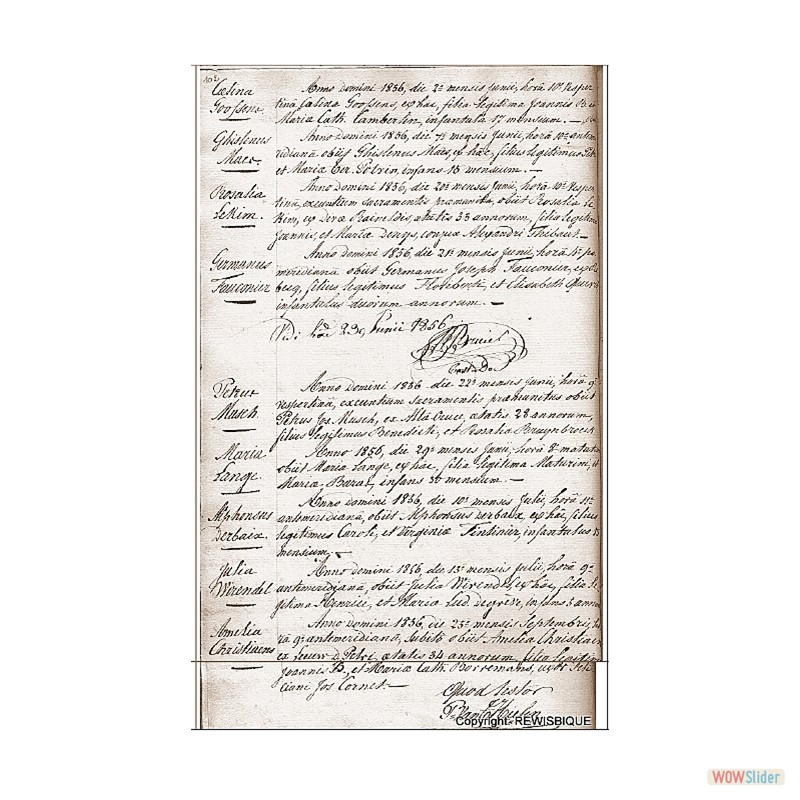 102
Cælina
Goossens
Anno domini 1856, die 2ª mensis junii, horâ 10ª vesper
tinâ Cælina Goossens, ex hac, filia legitima Joannis B. et
Maria Cath. Lambertin, infantula 17 mensium. —
Ghislenus
Maes.
Anno domini 1856, die 7ª mensis junii, horâ 10ª ante
ridianâ obiit Ghislenus Maes, ex hâc, filius legitimus
et Mariæ Ter. Potvin, infans 13 mensium. —
Rosalia
Lekim.
Anno domini 1856, die 20ª mensis junii, horâ 10ª vesper
tinâ, exeuntium sacramentis præmunita, obiit Rosalia Le
kim, ex ætatis 33 annorum, filia legitima
Joannis, et Mariæ Denys, conjux Alexandri Thibaut.
Germanus
Fauconier
Anno domini 1856, die 21ª mensis junii, horâ 4ª po
meridianâ obiit Germanus Joseph Fauconier, ex
berg, filius legitimus Floriberti, et Elisabeth
infantulus duorum annorum. —
Vidi hâc 23ª Junii 1856
Petrus
Musch.
Anno domini 1856 die 22ª mensis junii, horâ 9ª
vespertinâ, exeuntium Sacramentis præmunitus obiit
Petrus Jos. Musch, ex Altâ Cruce, ætatis 28 annorum,
filius legitimus Benedicti, et Rosalia Bruynbroeck
Maria
Lange.
Anno 1856, die 29ª mensis junii, horâ 8ª matutin
obiit Maria Lange, ex hâc, filia legitima Maturini, et
Maria Bazat, infans 30 mensium. —
Alphonsus
Derbaix.
Anno domini 1856, die 10ª mensis julii, horâ 11ª
antemeridianâ, obiit Alphonsus Derbaix, ex hâc, filius
legitimus Caroli, et Virginiæ Tintinier, infantulus
mensium. —
Julia
Wirendel
Anno domini 1856 die 15ª mensis julii, horâ 9ª
antimeridianâ, obiit Julia Wirendel, ex hâc, filia le
gitima Henrici, et Maria Lud. Degrève, infans 5 anno
Amelia
Christiaens
Anno domini 1856, die 25ª mensis Septembris, ho
râ 9ª antemeridianâ, subitò obiit Amelia Christiaen
ex Leeuw S. Petri, ætatis 34 annorum, filia legitima
Joannis B. et Mariæ Cath. Borremans, uxor Feli
ciani Jos Cornet. —
Quod testor
Copyright- REWISBIQUE
WOWSlider